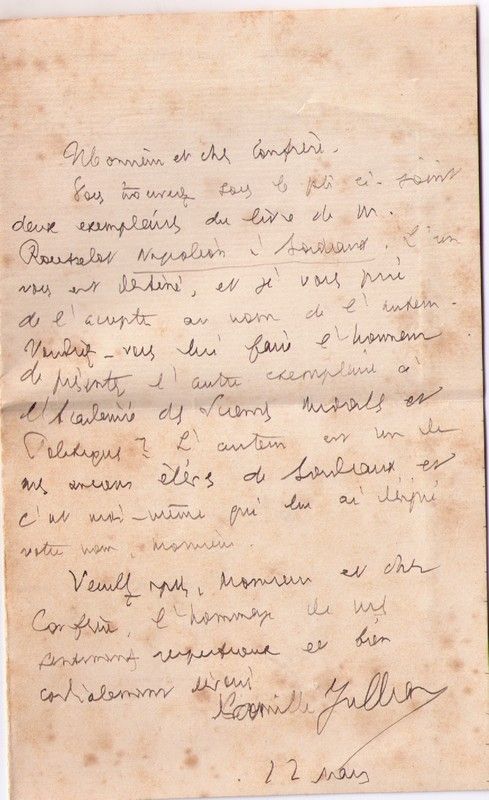 Monsieur et cher Confrère.
Vous trouverez sous le pli ci-joint
deux exemplaires du livre de M.
Rousselot Napoléon à Bordeaux. L'un
vous est destiné, et je vous prie
de l'accepter au nom de l'auteur.
Voudriez-vous lui faire l'honneur
de présenter l'autre exemplaire à
l'Académie des Sciences Morales et
Politiques? L'auteur est un de
mes anciens élèves de Bordeaux et
c'est moi-même qui lui ai désigné
votre nom, Monsieur.
Veuillez Monsieur et cher
Confrère, l'hommage de mes
sentiments respectueux et bien
cordialement dévoués
Camille Jullian
22 mars